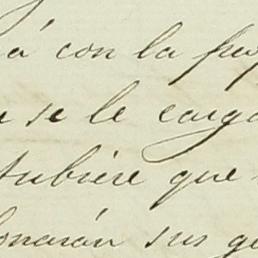 á con la
se le carga
tubiere que
onarán sus